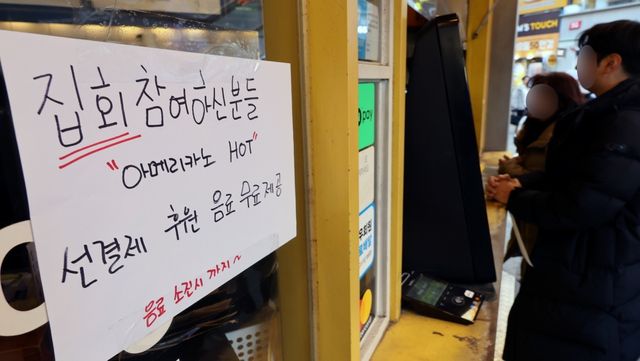 집회 참여하신분들
"아메리카노 HOT"
선결제 후원 음료 무료제공
음료 소진시 까지~
pay
M'S TOUCH